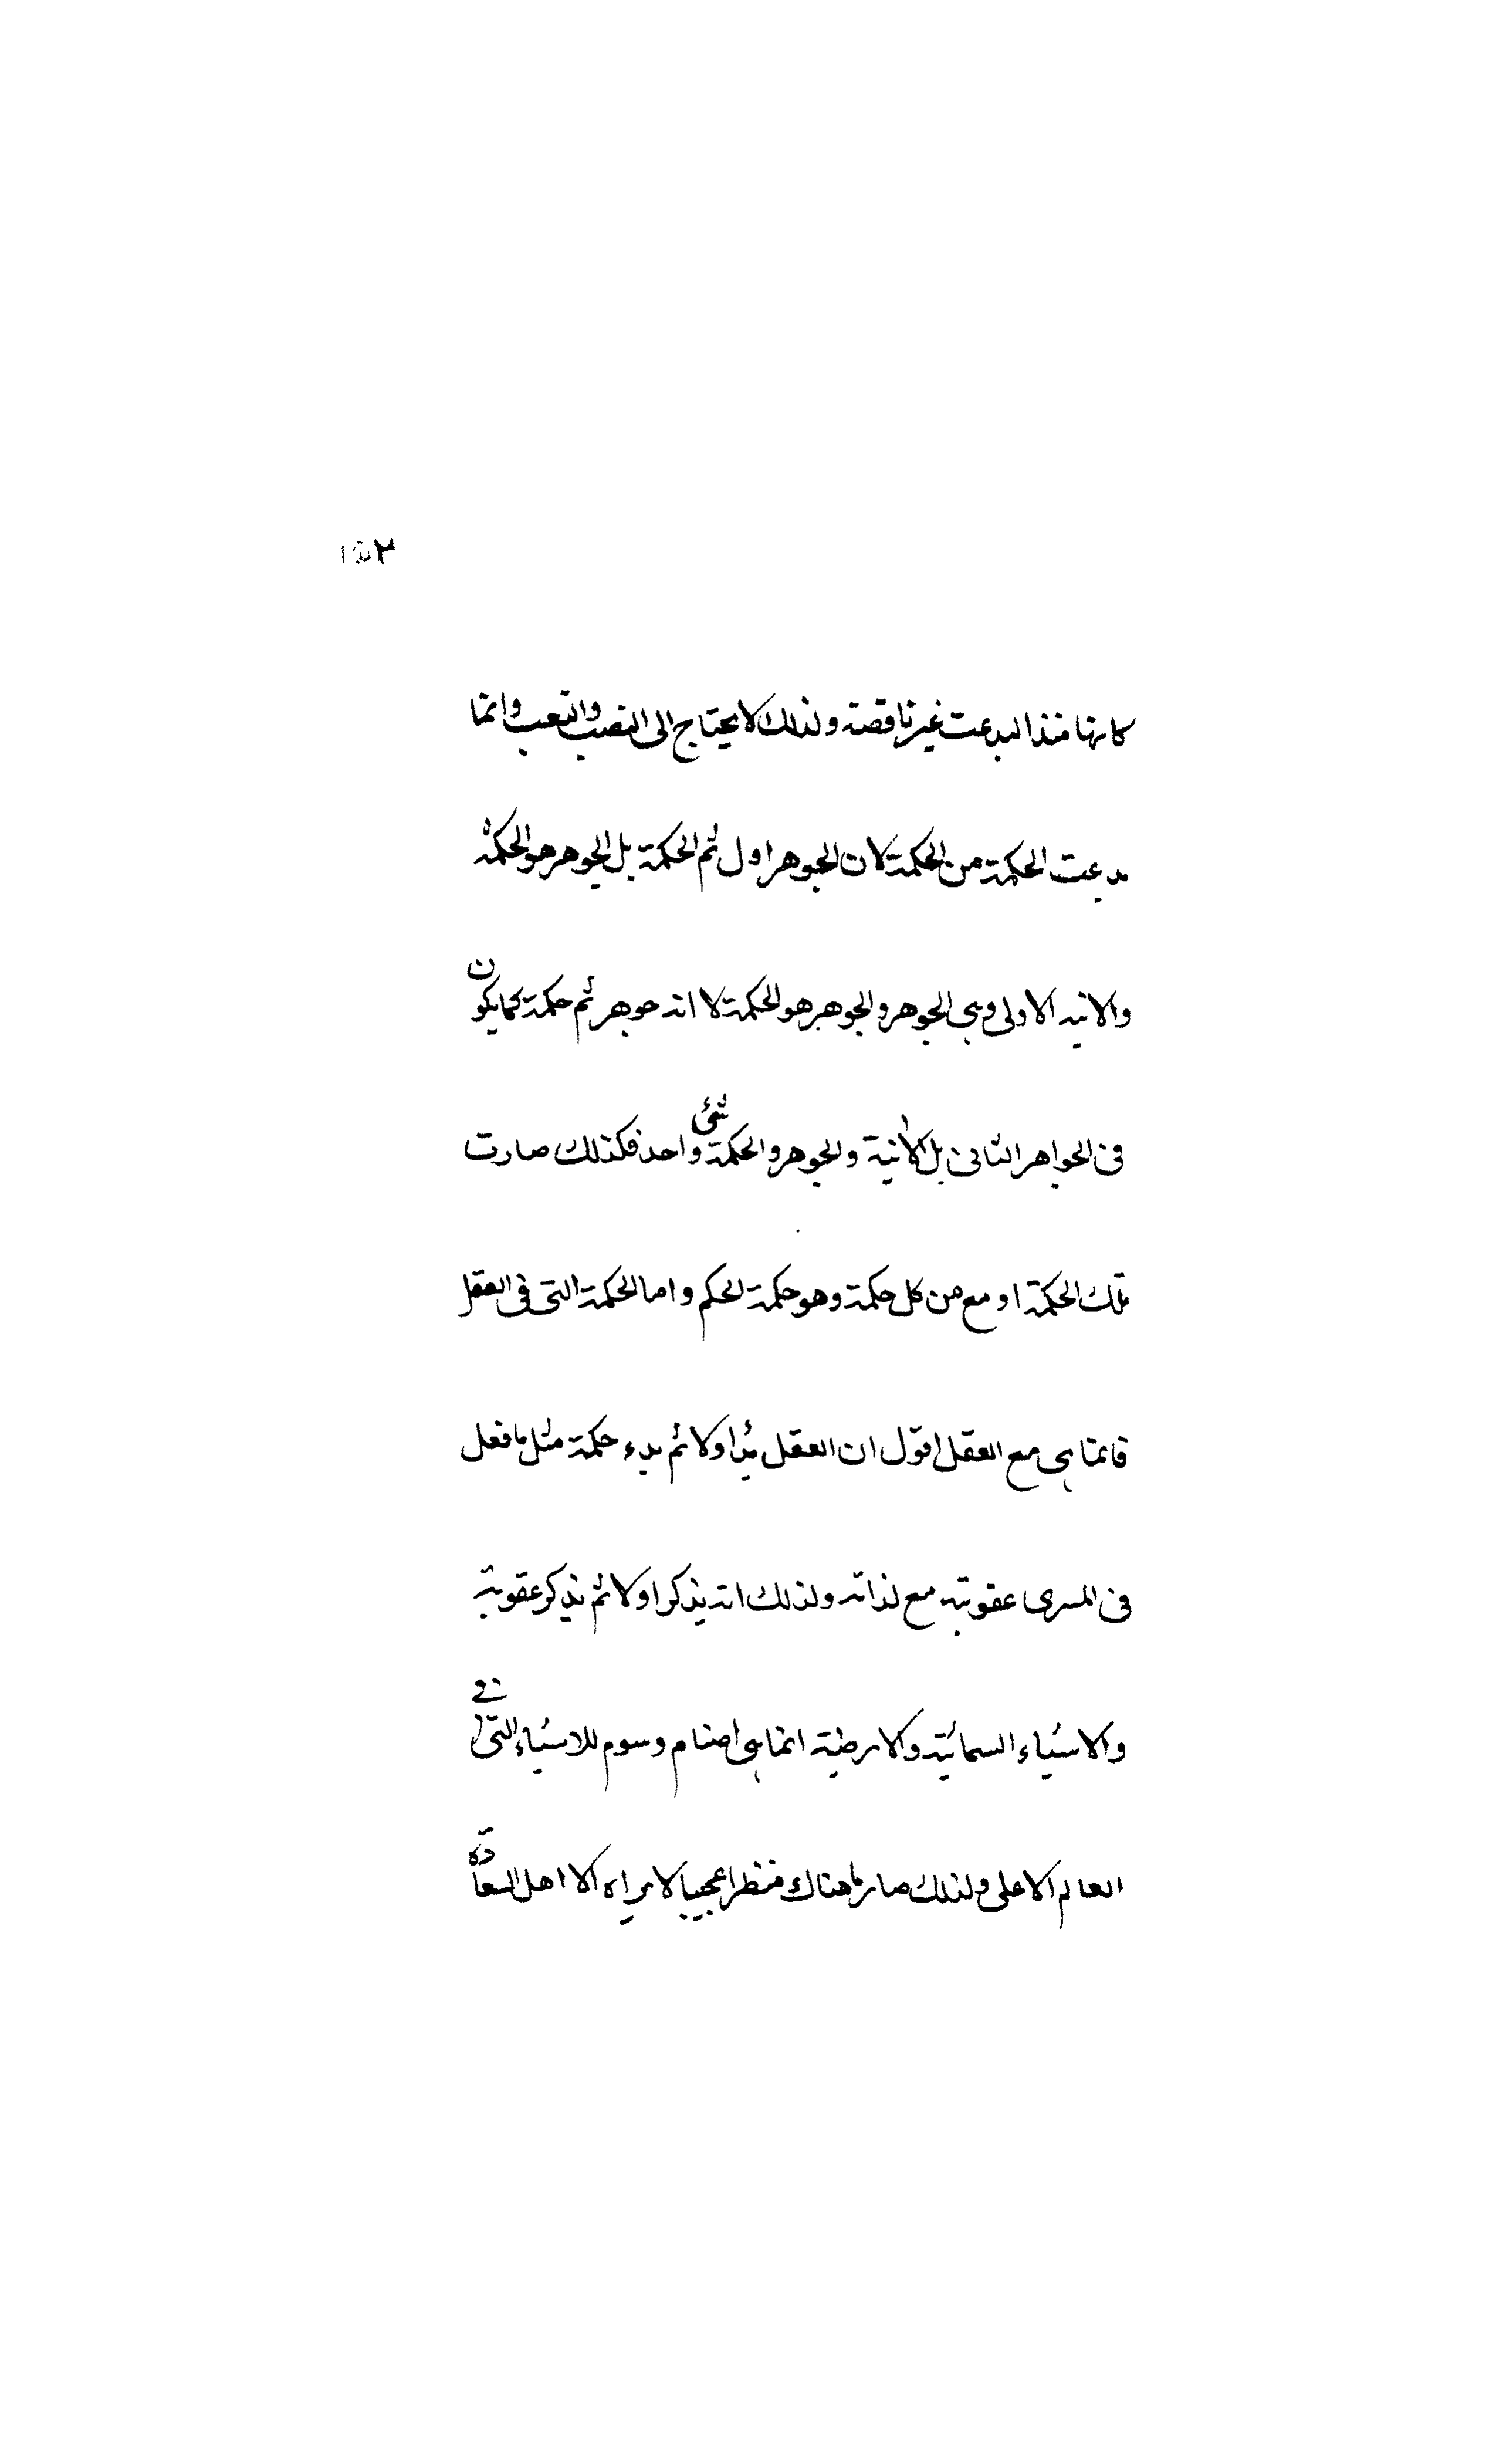 كانها منذ ابدعت غير ناقصة ولذلك لا يحتاج الى النصب والتعب وانما
بدعت الحكمة من الحكمة لان الجوهر اول ثم الحكمة بل الجوهر هو الحكمة
والانية الاولى وهى الجوهر والجوهر هو الحكمة لا انه جوهر ثم حكمة كما يكون
فى الجواهر الثانى بل الانية والجوهر والحكمة شئ واحد فكذلك صارت
تلك الحكمة اوسع من كل حكمة وهو حكمة الحكم واما الحكمة التى فى العقل
فانما هى مع العقل اقول ان العقل بدأ اولا ثم بدء حكمة مثل ما فعل
فى المسرى عقوبته مع لذاته ولذلك انه يذكر اولا ثم يذكر عقوبته
والاشياء السمائية والارضية انما هى اصنام وسوم للاشياء التى فى
العالم الاعلى ولذلك صار ما هناك منظرا عجيبا لا يراه الا اهل السعادة